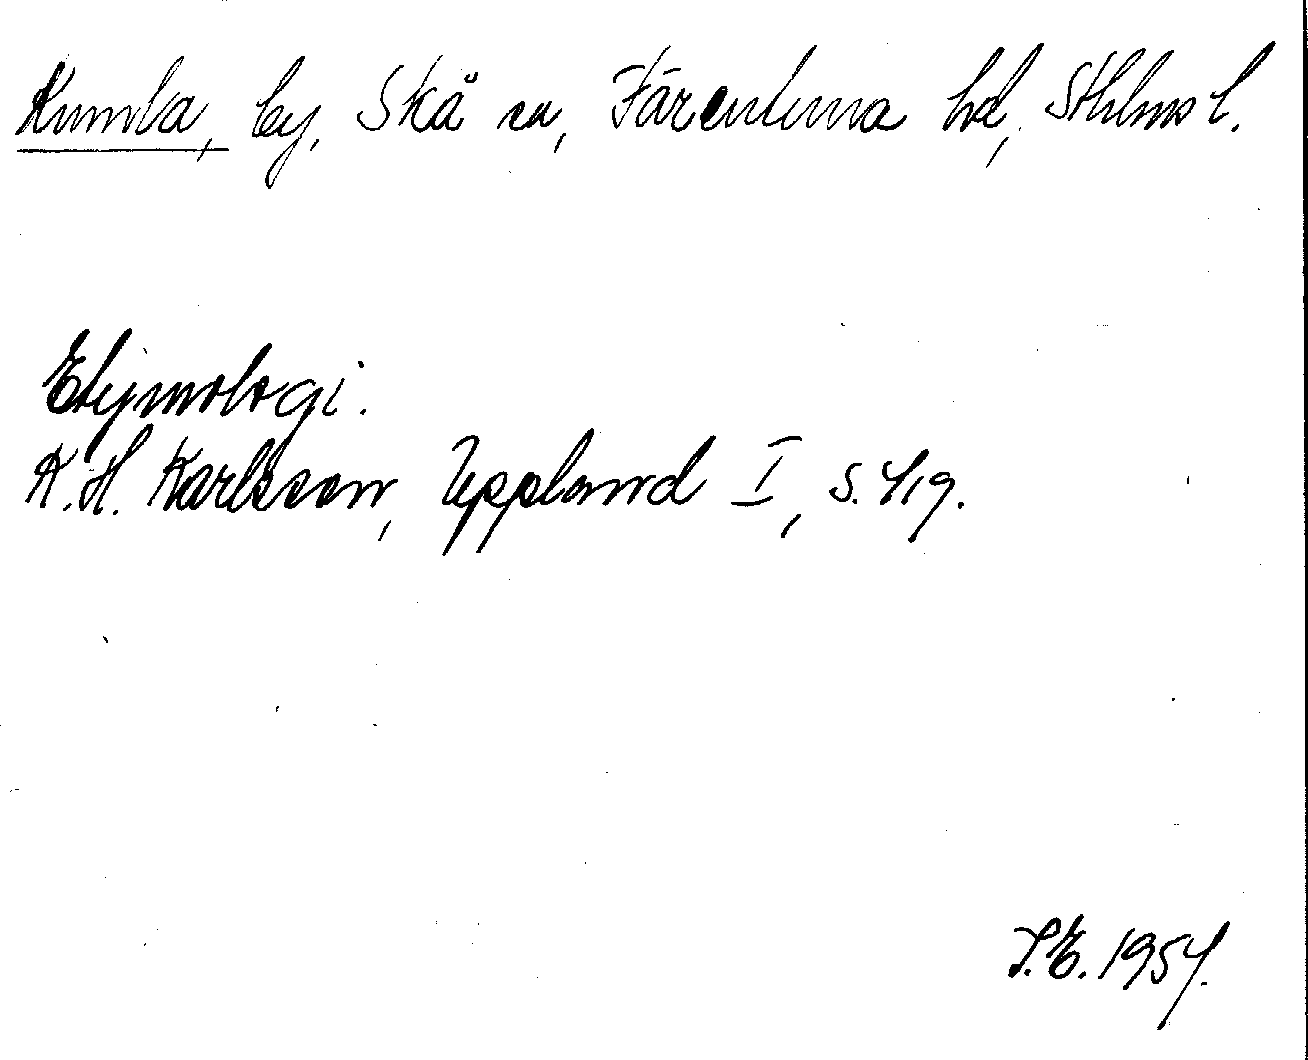 Kumla, by, Skå sn, Färentuna hd, Sthlms l.
Etymologi.
K.H. Karlsson, Uppland I, s. 419.
I.E. 1954.